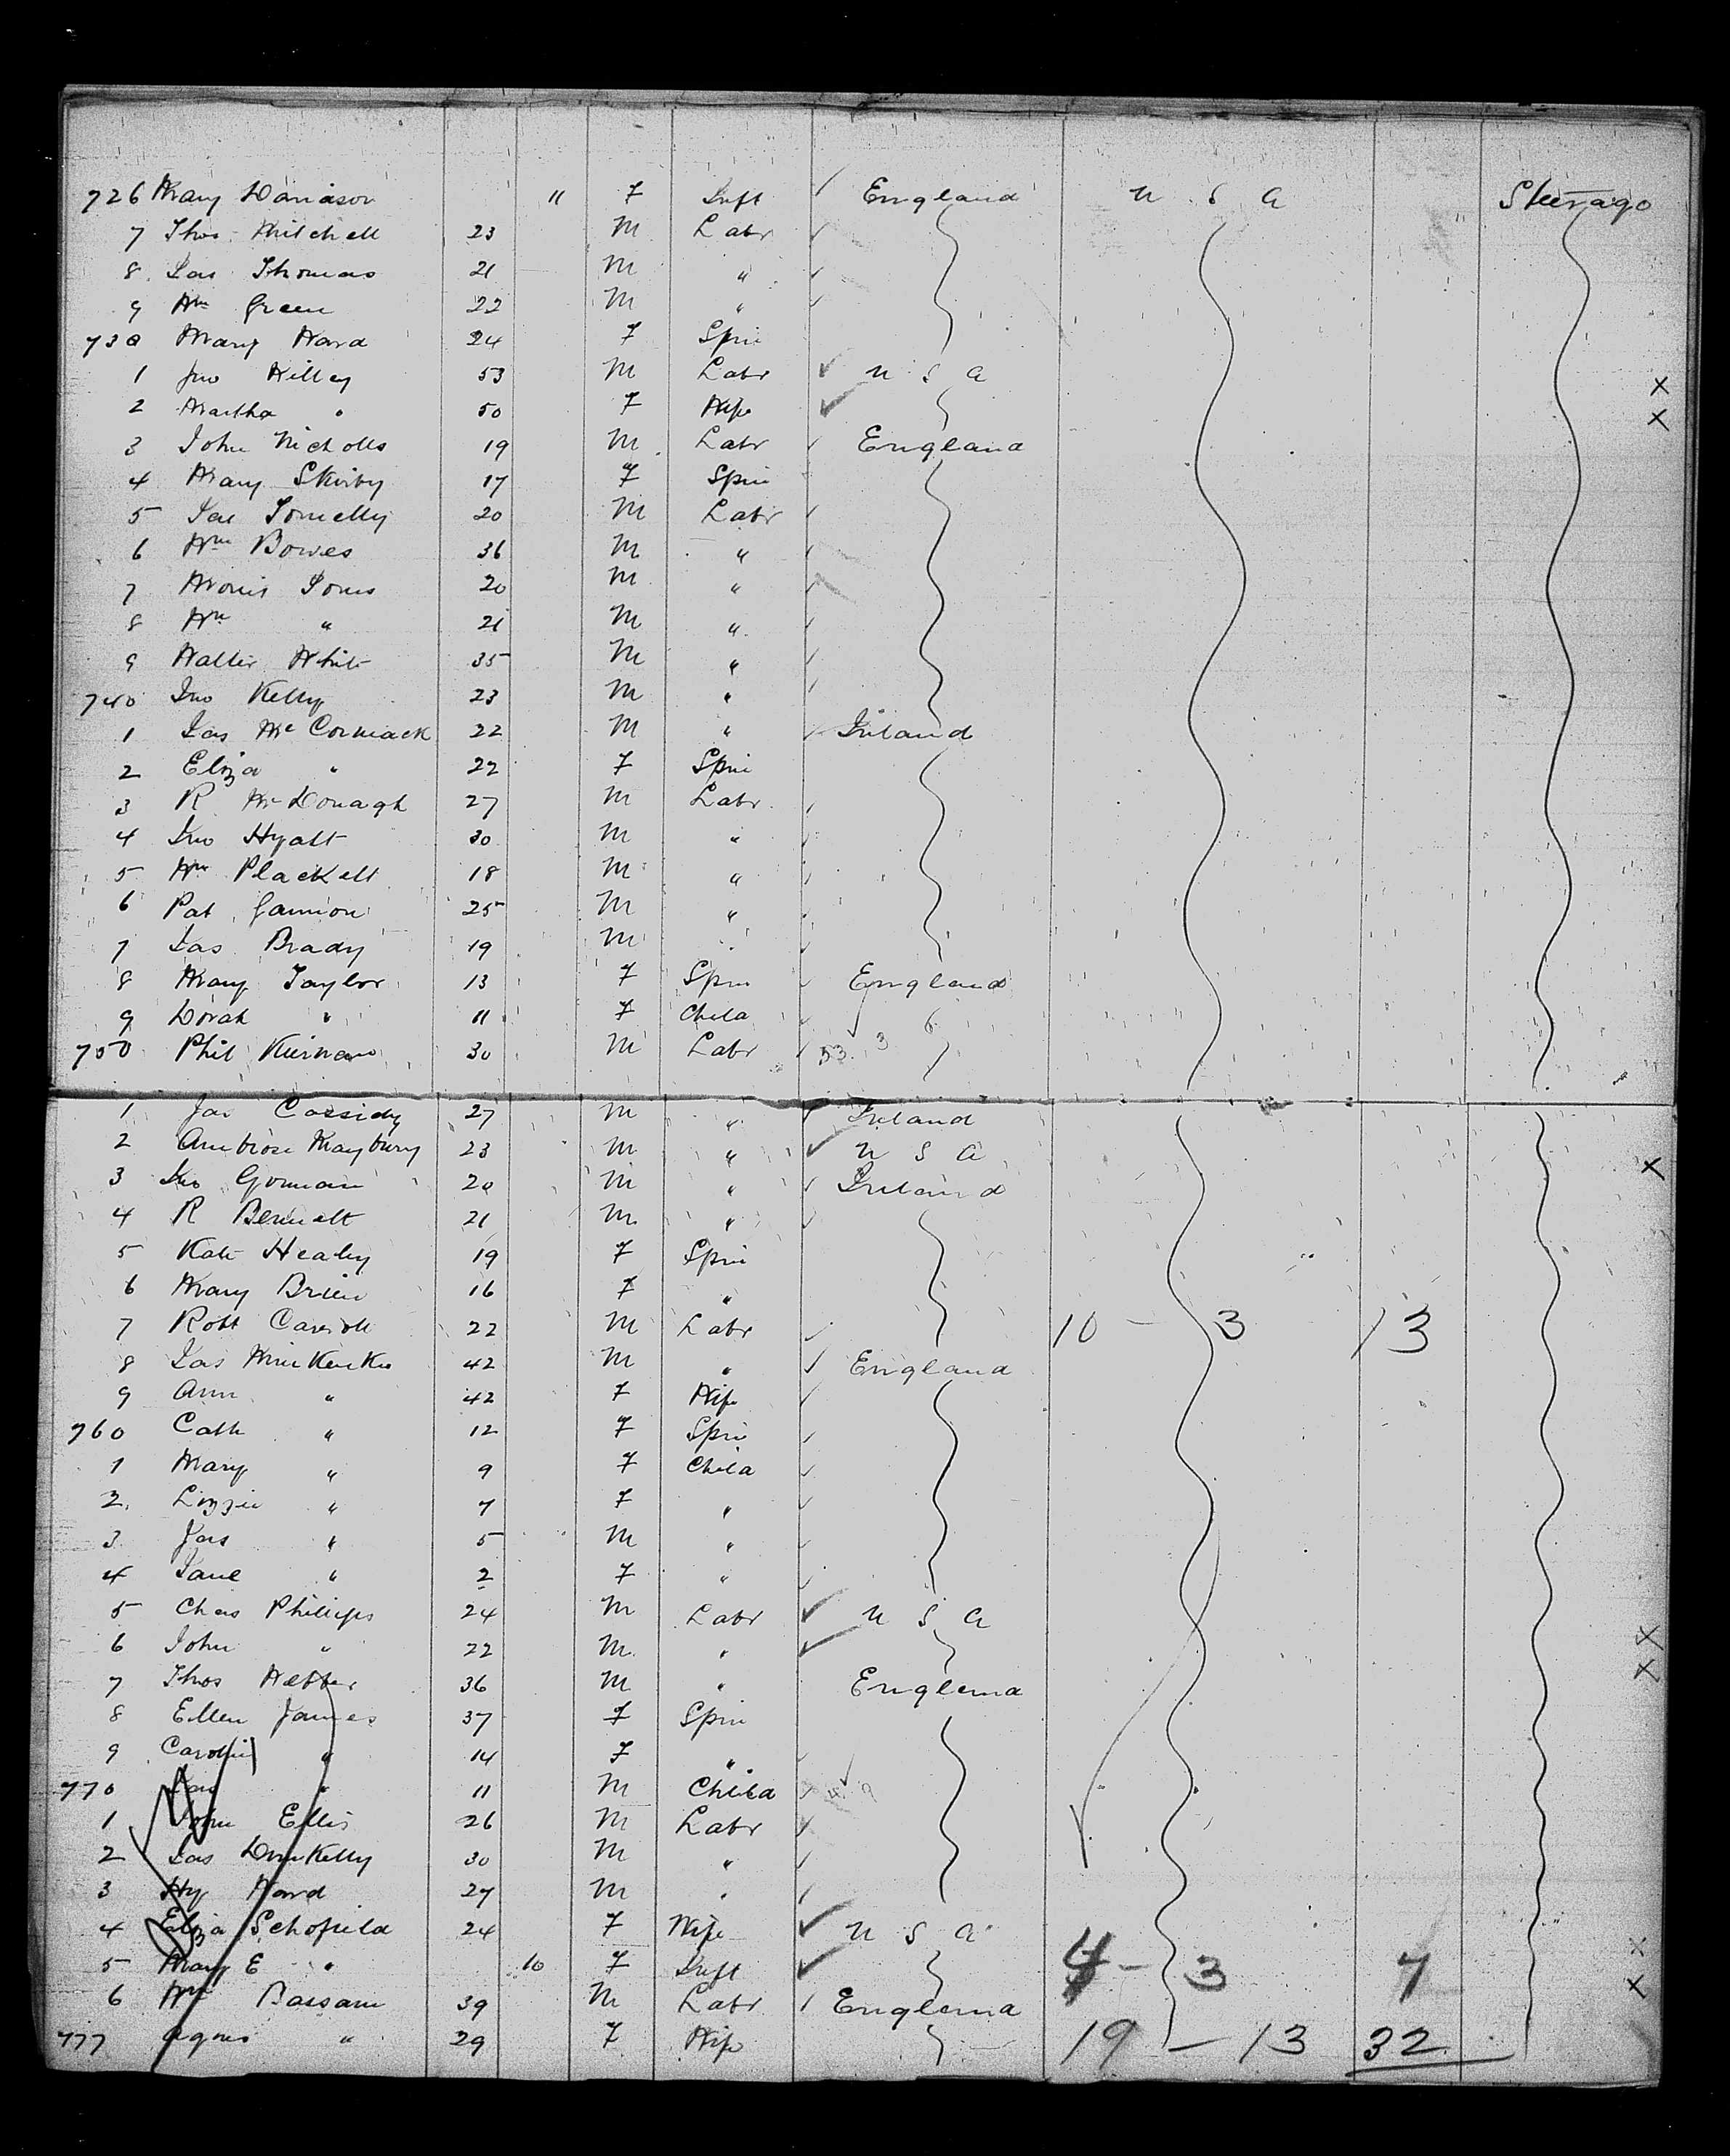 726 Mary Davidson 11 F Inft England U S A Steerage
7 Thos Mitchell 23 M Labr
8 Jas Thomas 21 M "
9 Wm Green 22 M "
730 Mary Ward 24 F Spin
1 Jno Killey 53 M Labr U S A X
2 Martha " 50 F Wife X
3 John Nicholls 19 M Labr England
4 Mary Skirby 17 F Spin
5 20 M Labr
6 Wm Bowes 36 M "
7 20 M "
8 Wm " 21 M "
9 Walter White 35 M "
740 Jno Kelly 23 M "
1 Jas McCormack 22 M " Ireland
2 Eliza " 22 F Spin
3 R McDonagh 27 M Labr
4 Jno Hyatt 30 M "
5 Wm Plackett 18 M "
6 Pat Gannon 25 M "
7 Jas Brady 19 M "
8 Mary Taylor 13 F Spin England
9 Dorah " 11 F Child 6
750 Phil Kiernan 30 M Labr 53 3
1 Jas Cassidy 27 M " Ireland
2 Ambrose Maybury 23 M " U S A X
3 Jno Gorman 20 M " Ireland
4 R Bennett 21 M "
5 Kate Healey 19 F Spin
6 Mary Brien 16 F "
7 Robt Carroll 22 M Labr 10 - 3 13
8 Jas 42 M " England
9 Ann " 42 F Wife
760 Cath " 12 F Spin
1 Mary " 9 F Child
2 Lizzie " 7 F "
3 Jas " 5 M "
4 Jane " 2 F "
5 Chas Phillips 24 M Labr U S A X
6 John " 22 M " X
7 Thos Webber 36 M " England
8 Ellen James 37 F Spin
9 Carolin " 14 F "
770 Jas " 11 M Child
1 John Ellis 26 M Labr
2 Jas Dunkelly 30 M "
3 Hy Ward 27 M "
4 Eliza Schofield 24 F Wife U S A X
5 Mary E " 10 F Inft 4 - 3 7
6 Wm Bassam 39 M Labr England X
777 Agnes " 29 F Wife 19 - 13 32